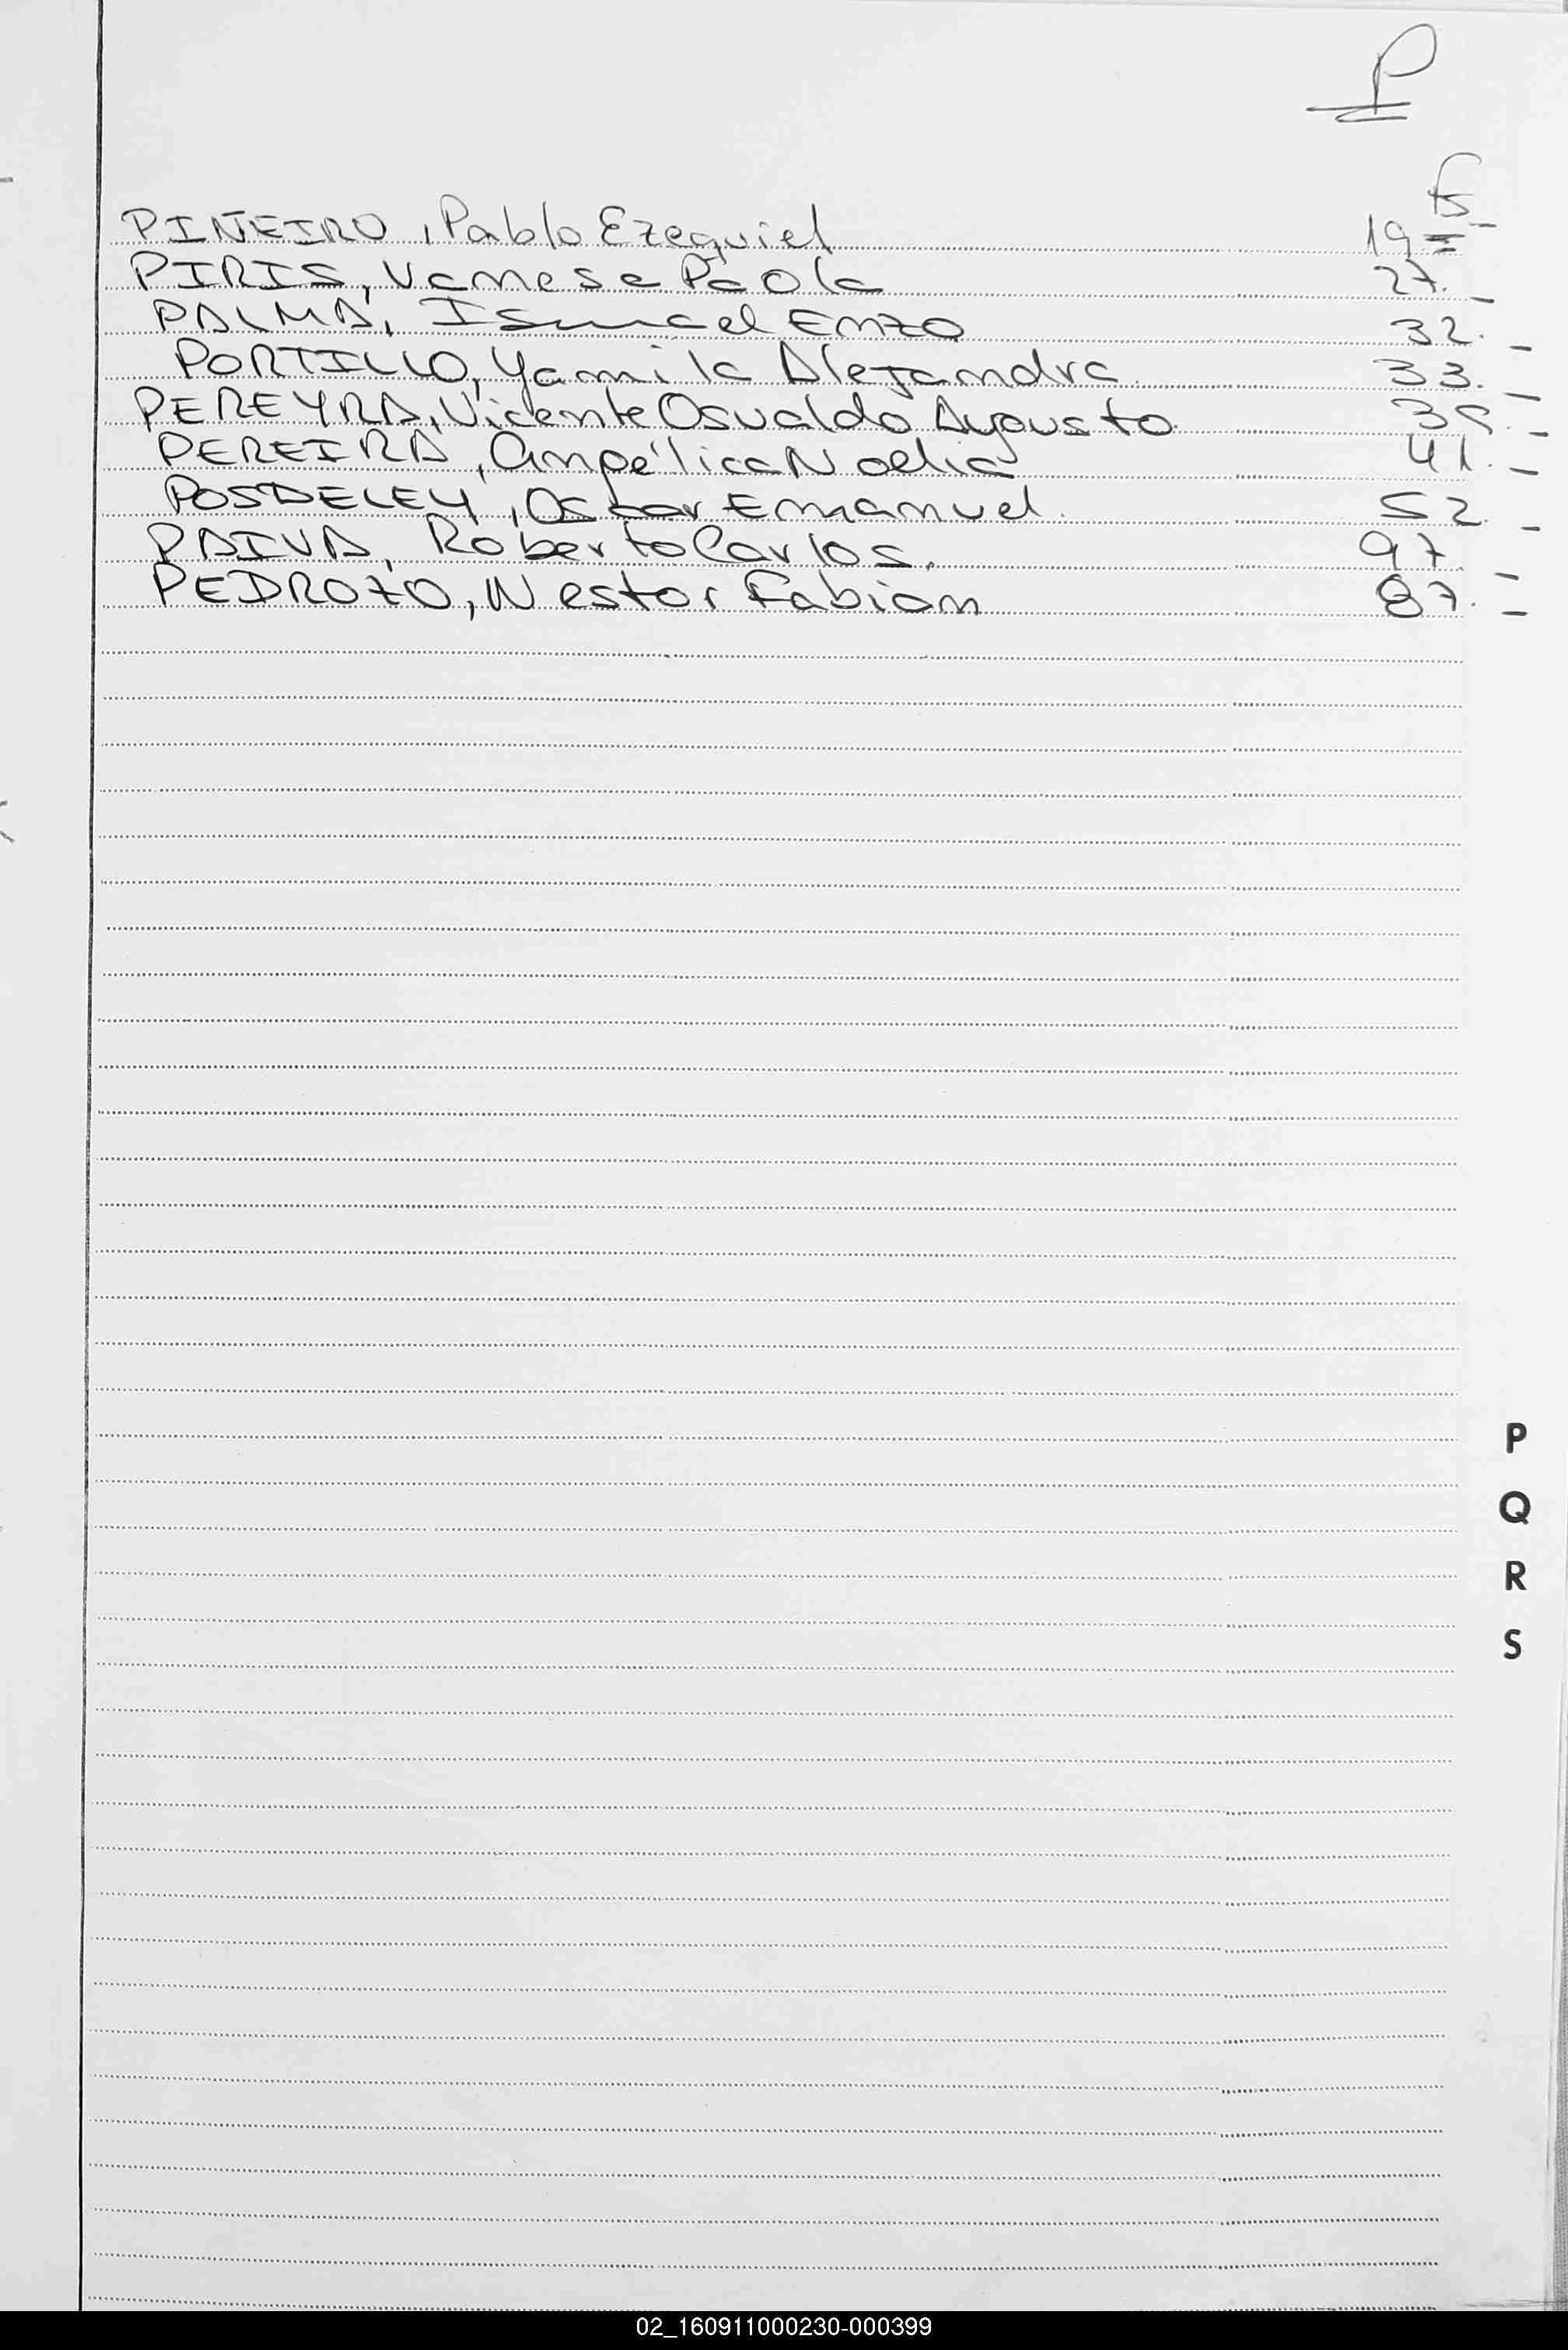 P
fs
PINEIRO, Pablo Ezequiel 19
PIRIS, Vanesa Paola 27.
PALMA, Ismael Enzo 32.
PORTILLO, Yamila Alejandra 33.
PEREYRA, Vicente Osvaldo Agousto 35.
PEREIRA, Angélica Noelia 41.
POSDELEY, Oscar Emanuel. 52.
PAIVA, Roberto Carlos. 97.
PEDROZO, Nestor Fabian 87.
P
Q
R
S
02_160911000230-000399